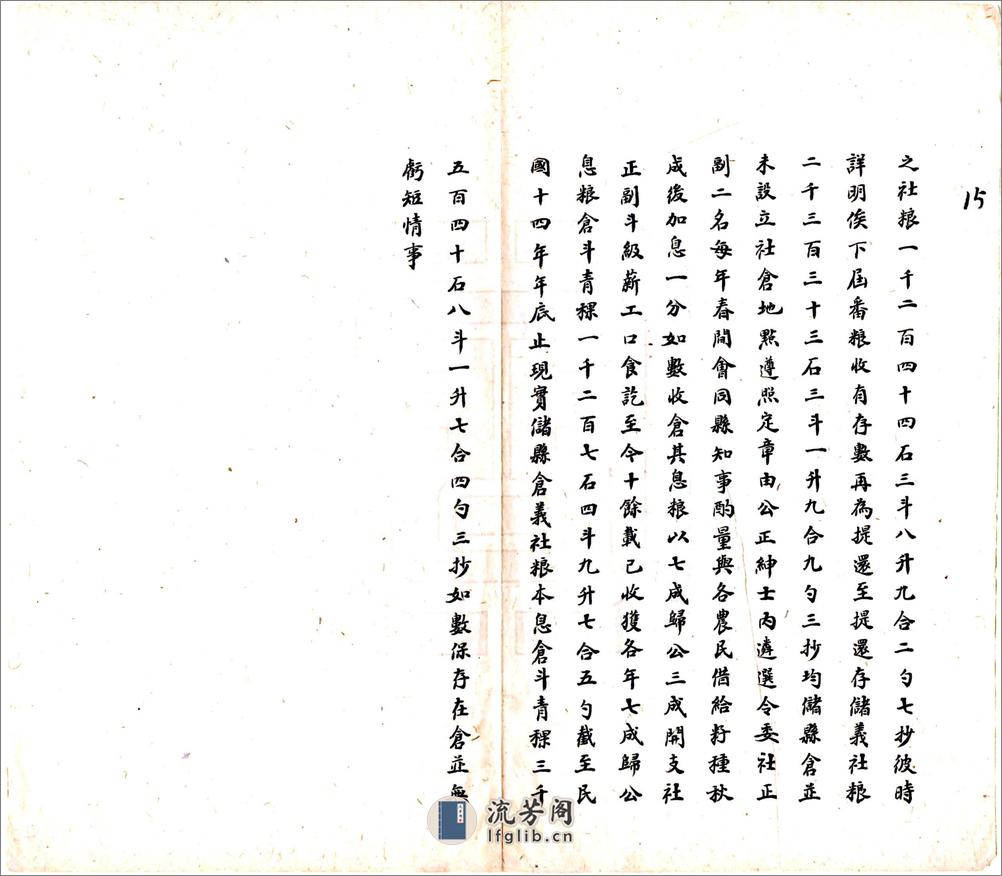 15
之社粮一千二百四十四石三斗八升九合二勺七抄彼時
詳明俟下屆番粮收有存數再為提還至提還存儲義社粮
二千三百三十三石三斗一升九合九勺三抄均儲縣倉並
未設立社倉地點遵照定章由公正紳士內遴選令委社正
副二名每年春間會同縣知事酌量與各農民借給籽種秋
成後加息一分如數收倉其息粮以七成歸公三成開支社
正副斗級薪工口食訖至今十餘載已收獲各年七成歸公
息粮倉斗青稞一千二百七石四斗九升七合五勺截至民
國十四年年底止現實儲縣倉義社粮本息倉斗青稞三千
五百四十石八斗一升七合四勺三抄如數保存在倉並無
虧短情事
流芳阁
lfglib.cn